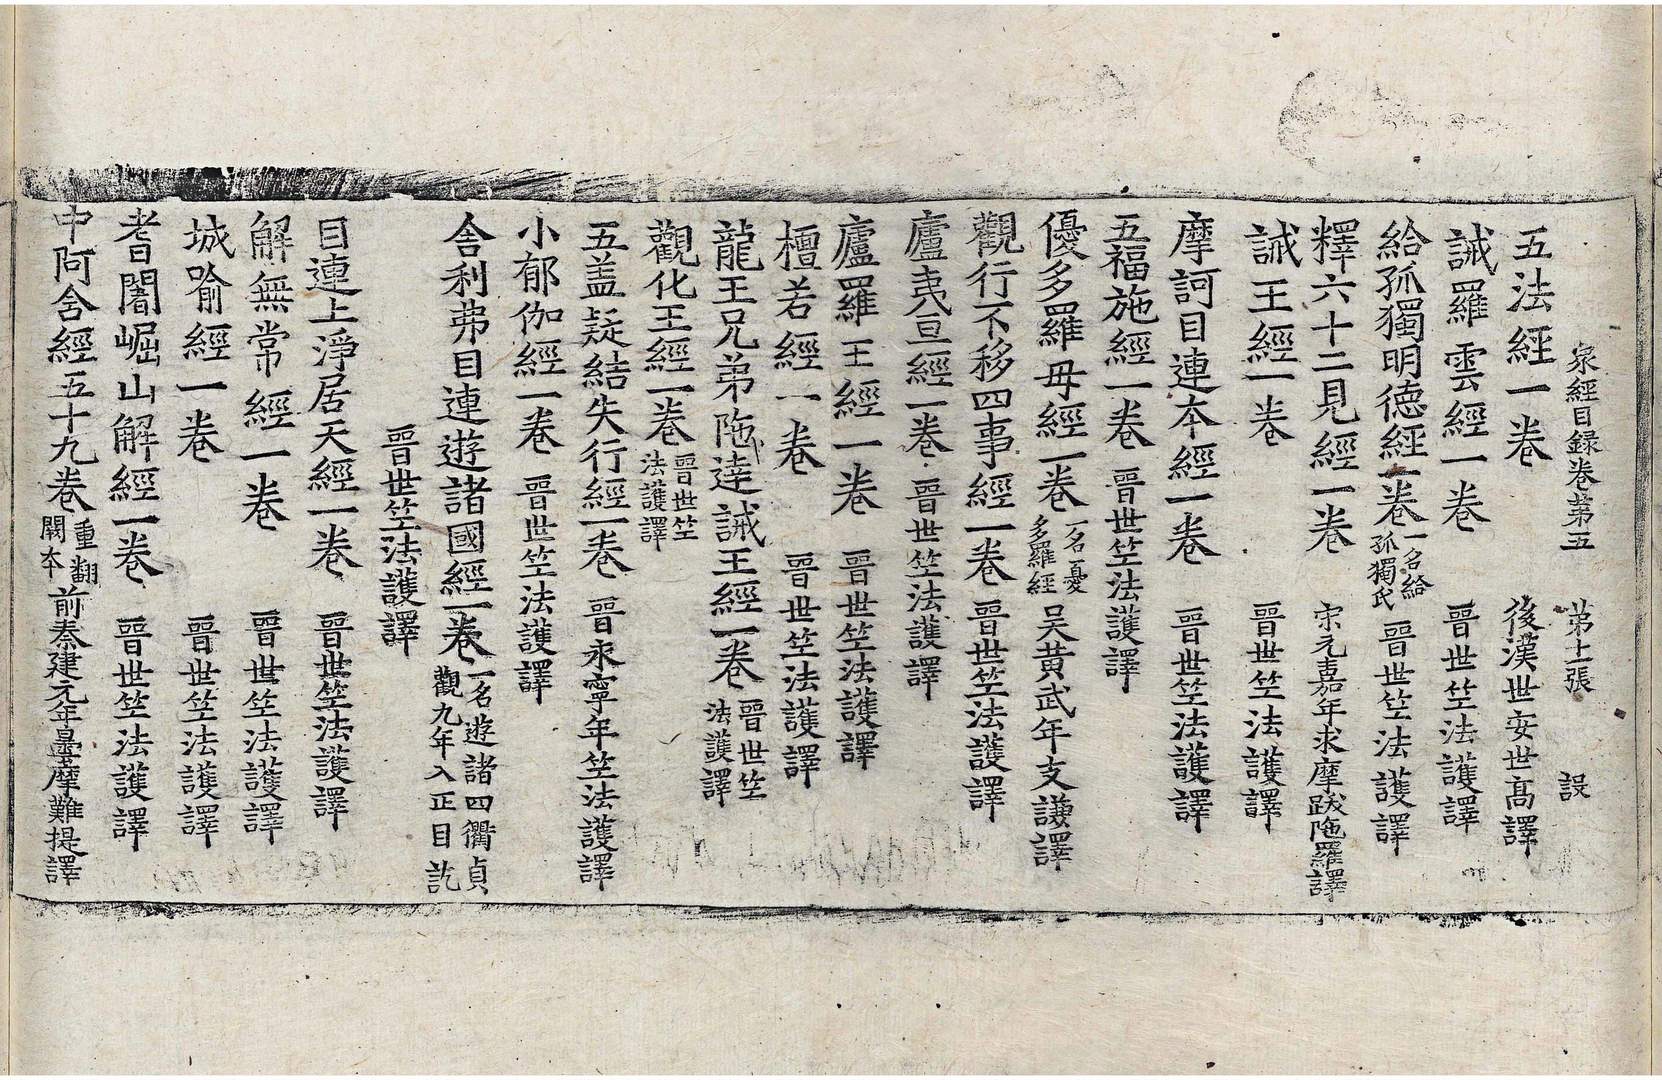 衆經目録卷第五 第十一張 設
五法經一卷 後漢世安世高譯
誡羅雲經一卷 晉世竺法護譯
給孤獨明德經一卷 一名給孤獨氏 晉世竺法護譯
釋六十二見經一卷 宋元嘉年求摩跋陁羅譯
誡王經一卷 晉世竺法護譯
摩訶目連本經一卷 晉世竺法護譯
五福施經一卷 晉世竺法護譯
優多羅母經一卷 一名憂多羅經 吴黃武年支謙譯
觀行不移四事經一卷 晉世竺法護譯
廬夷亘經一卷 晉世竺法護譯
廬羅王經一卷 晉世竺法護譯
檀若經一卷 晉世竺法護譯
龍王兄弟陁逹誡王經一卷 晉世竺法護譯
觀化王經一卷 晉世竺法護譯
五盖疑結失行經一卷 晉永寧年竺法護譯
小郁伽經一卷 晉世竺法護譯
舍利弗目連遊諸國經一卷 一名遊諸四衢貞觀九年入正目訖
晉世竺法護譯
目連上淨居天經一卷 晉世竺法護譯
解無常經一卷 晉世竺法護譯
城喻經一卷 晉世竺法護譯
耆闍崛山解經一卷 晉世竺法護譯
中阿舍經五十九卷 重翻闕本 前秦建元年曇摩難提譯